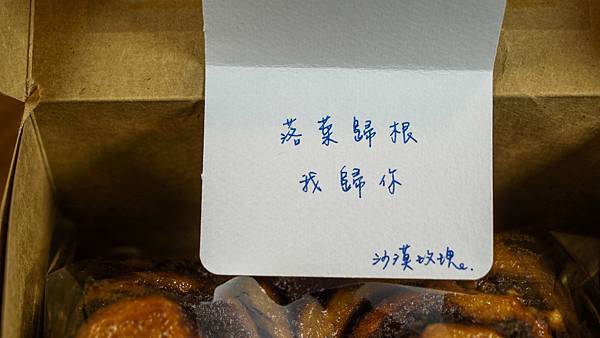 落葉歸根
我歸你
沙漠玫瑰